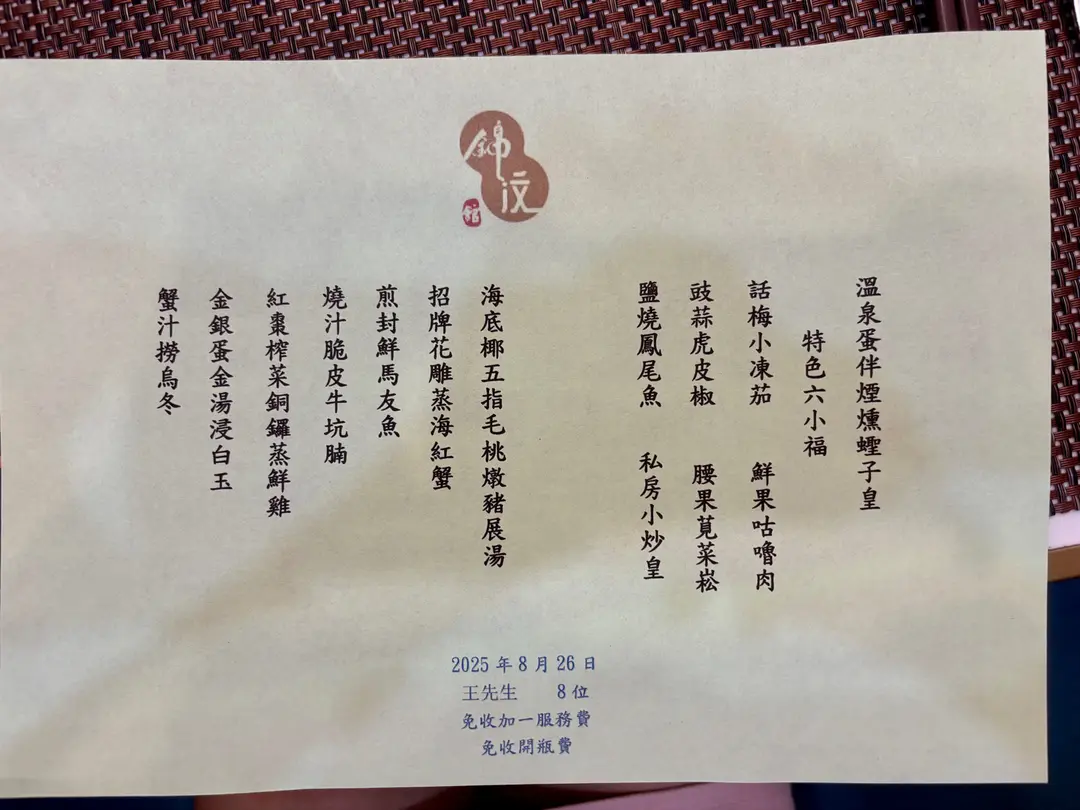 錦汶館
溫泉蛋伴煙燻蟶子皇
特色六小福
話梅小凍茄 鮮果咕嚕肉
豉蒜虎皮椒 腰果莧菜崧
鹽燒鳳尾魚 私房小炒皇
海底椰五指毛桃燉豬展湯
招牌花雕蒸海紅蟹
煎封鮮馬友魚
燒汁脆皮牛坑腩
紅棗榨菜銅鑼蒸鮮雞
金銀蛋金湯浸白玉
蟹汁撈烏冬
2025 年 8 月 26 日
王先生 8 位
免收加一服務費
免收開瓶費